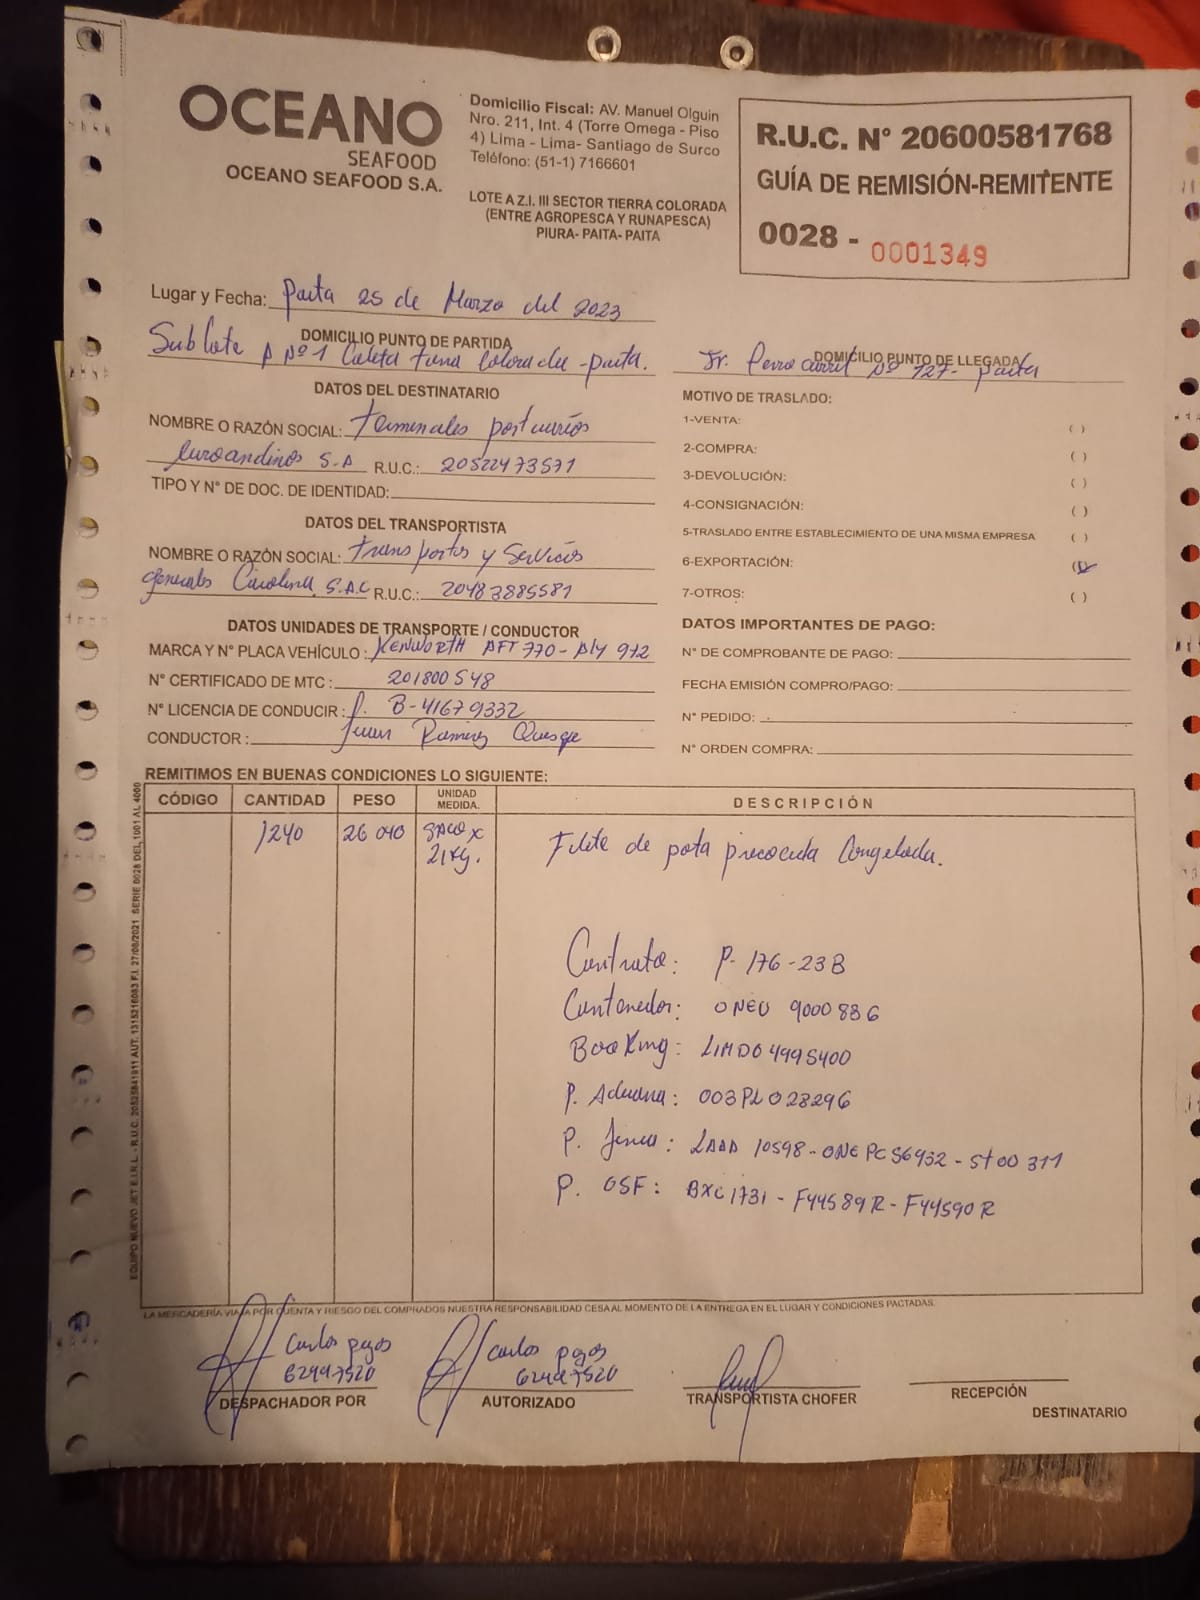 OCEANO
SEAFOOD
OCEANO SEAFOOD S.A.
Domicilio Fiscal: AV. Manuel Olguin
Nro. 211, Int. 4 (Torre Omega - Piso
4) Lima - Lima- Santiago de Surco
Teléfono: (51-1) 7166601
LOTE A Z.I. III SECTOR TIERRA COLORADA
(ENTRE AGROPESCA Y RUNAPESCA)
PIURA- PAITA- PAITA
R.U.C. N° 20600581768
GUÍA DE REMISIÓN-REMITENTE
0028 - 0001349
Lugar y Fecha: Paita 25 de Marzo del 2023
DOMICILIO PUNTO DE PARTIDA
Sub Lote A Nº 1 Caleta Colorada - Paita.
DOMICILIO PUNTO DE LLEGADA
Jr. Ferrocarril Nº 127- paita
DATOS DEL DESTINATARIO
NOMBRE O RAZÓN SOCIAL: Terminales portuarios
Euroandinos S.A R.U.C.: 20522473571
TIPO Y N° DE DOC. DE IDENTIDAD:
DATOS DEL TRANSPORTISTA
NOMBRE O RAZÓN SOCIAL: Transportes y Servicios
generales Carolina S.A.C R.U.C.: 20483885581
DATOS UNIDADES DE TRANSPORTE / CONDUCTOR
MARCA Y N° PLACA VEHÍCULO: KENWORTH AFT 770 - 972
N° CERTIFICADO DE MTC: 201800548
N° LICENCIA DE CONDUCIR: B-41679332
CONDUCTOR: Juan Ramirez Quispe
MOTIVO DE TRASLADO:
1-VENTA: ( )
2-COMPRA: ( )
3-DEVOLUCIÓN: ( )
4-CONSIGNACIÓN: ( )
5-TRASLADO ENTRE ESTABLECIMIENTO DE UNA MISMA EMPRESA ( )
6-EXPORTACIÓN: (✓)
7-OTROS: ( )
DATOS IMPORTANTES DE PAGO:
N° DE COMPROBANTE DE PAGO:
FECHA EMISIÓN COMPRO/PAGO:
N° PEDIDO:
N° ORDEN COMPRA:
REMITIMOS EN BUENAS CONDICIONES LO SIGUIENTE:
CÓDIGO CANTIDAD PESO UNIDAD MEDIDA. DESCRIPCIÓN
1240 26 040 SACO x 21Kg. Filete de pota precocida Congelada.
Contrato: P-176-23B
Contenedor: ONEU 9000836
Booking: LIMD04995400
P. Aduana: 003PL028296
P. Linea: LAAA 10598 - ONEPCS6952 - ST00311
P. OSF: BXC1731 - F44589R - F44590R
EQUIPO NUEVO JET E.I.R.L. - R.U.C. 20525841911 AUT. 1315216083 F.I. 27/08/2021 SERIE 0028 DEL 1001 AL 4000
LA MERCADERÍA VIAJA POR CUENTA Y RIESGO DEL COMPRADOS NUESTRA RESPONSABILIDAD CESA AL MOMENTO DE LA ENTREGA EN EL LUGAR Y CONDICIONES PACTADAS.
Carlos pazos
62497520
DESPACHADOR POR
Carlos pazos
62497520
AUTORIZADO
TRANSPORTISTA CHOFER
RECEPCIÓN
DESTINATARIO